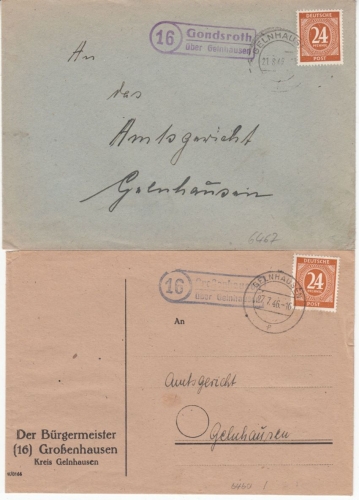 16
Gondsroth
über Gelnhausen
GELNHAUSEN
DEUTSCHE
24
PFENNIG
POST
An
das
Amtsgericht
Gelnhausen
16
über Gelnhausen
GELNHAUSEN
DEUTSCHE
24
PFENNIG
POST
An
Amtsgericht
Gelnhausen
Der Bürgermeister
(16) Großenhausen
Kreis Gelnhausen